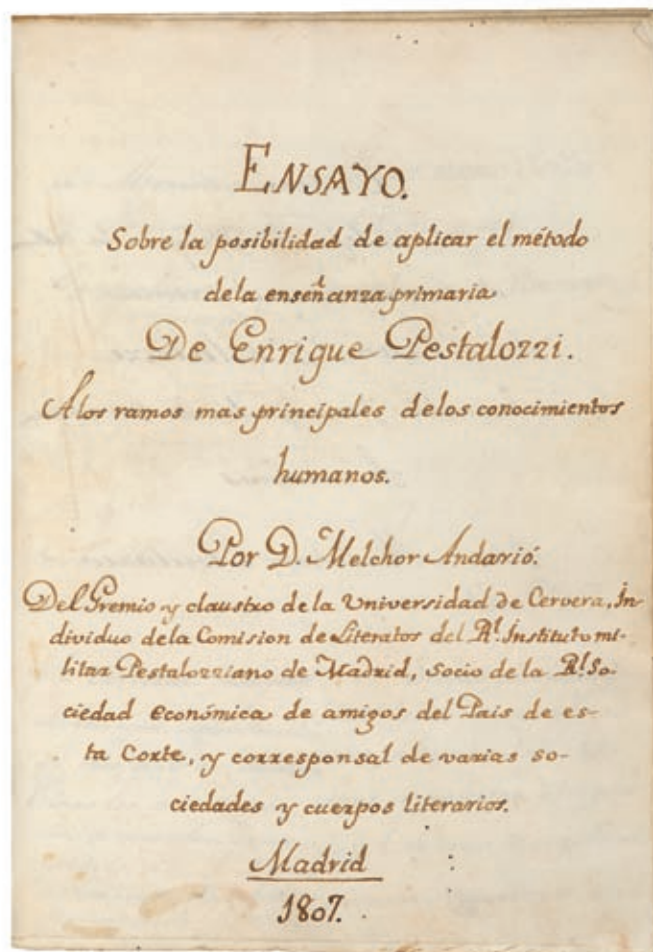 ENSAYO.
Sobre la posibilidad de aplicar el método
dela enseñanza primaria
De Enrique Pestalozzi.
Alos ramos mas principales delos conocimientos
humanos.
Por D. Melchor Andarió.
Del Gremio y claustro de la Universidad de Cervera, In-
dividuo dela Comision de Literatos del Rl. Instituto mi-
litar Pestalozziano de Madrid, socio de la Rl. So-
ciedad económica de amigos del Pais de es-
ta Corte, y corresponsal de varias so-
ciedades y cuerpos literarios.
Madrid
1807.